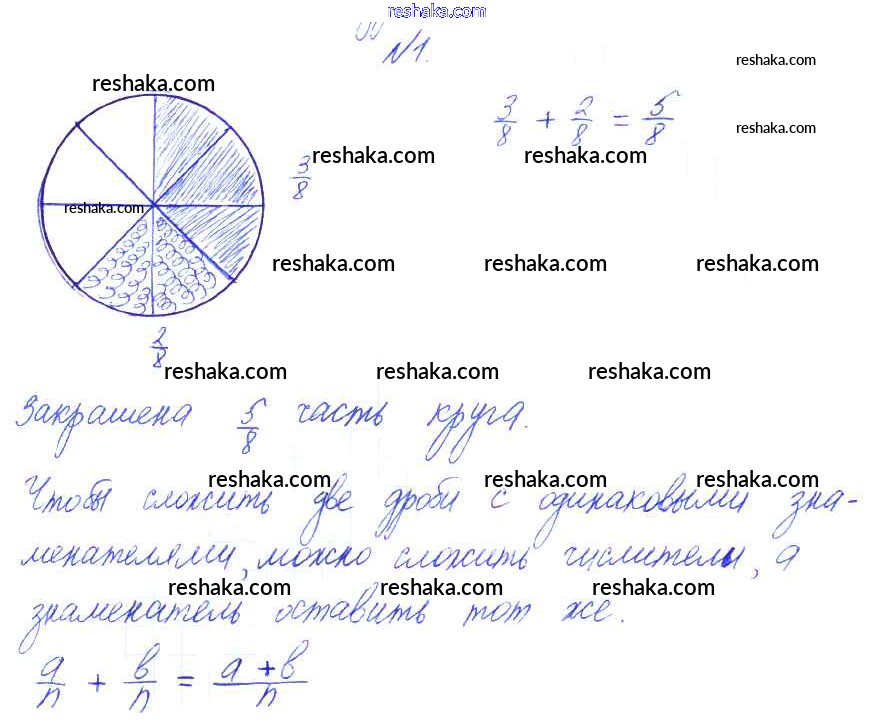 reshaka.com
№1.
reshaka.com
reshaka.com
3/8 + 2/8 = 5/8
reshaka.com
3/8
reshaka.com
reshaka.com
reshaka.com
reshaka.com
reshaka.com
reshaka.com
2/8
reshaka.com
reshaka.com
reshaka.com
Закрашена 5/8 часть круга.
reshaka.com
reshaka.com
reshaka.com
Чтобы сложить две дроби с одинаковыми зна-
менателями, можно сложить числители, а
reshaka.com
reshaka.com
reshaka.com
знаменатель оставить тот же.
a/n + b/n = a+b/n